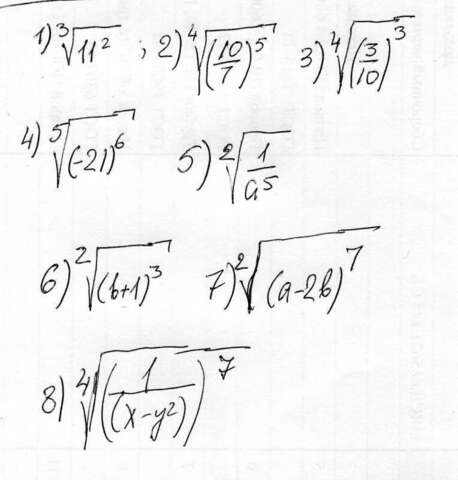 1) ∛(11²) ; 2) ∜((10/7)⁵) 3) ∜((3/10)³)
4) ⁵√((-21)⁶) 5) ²√(1/a⁵)
6) ²√((b+1)³) 7) ²√((a-2b)⁷)
8) ∜((1/(x-y²))⁷)